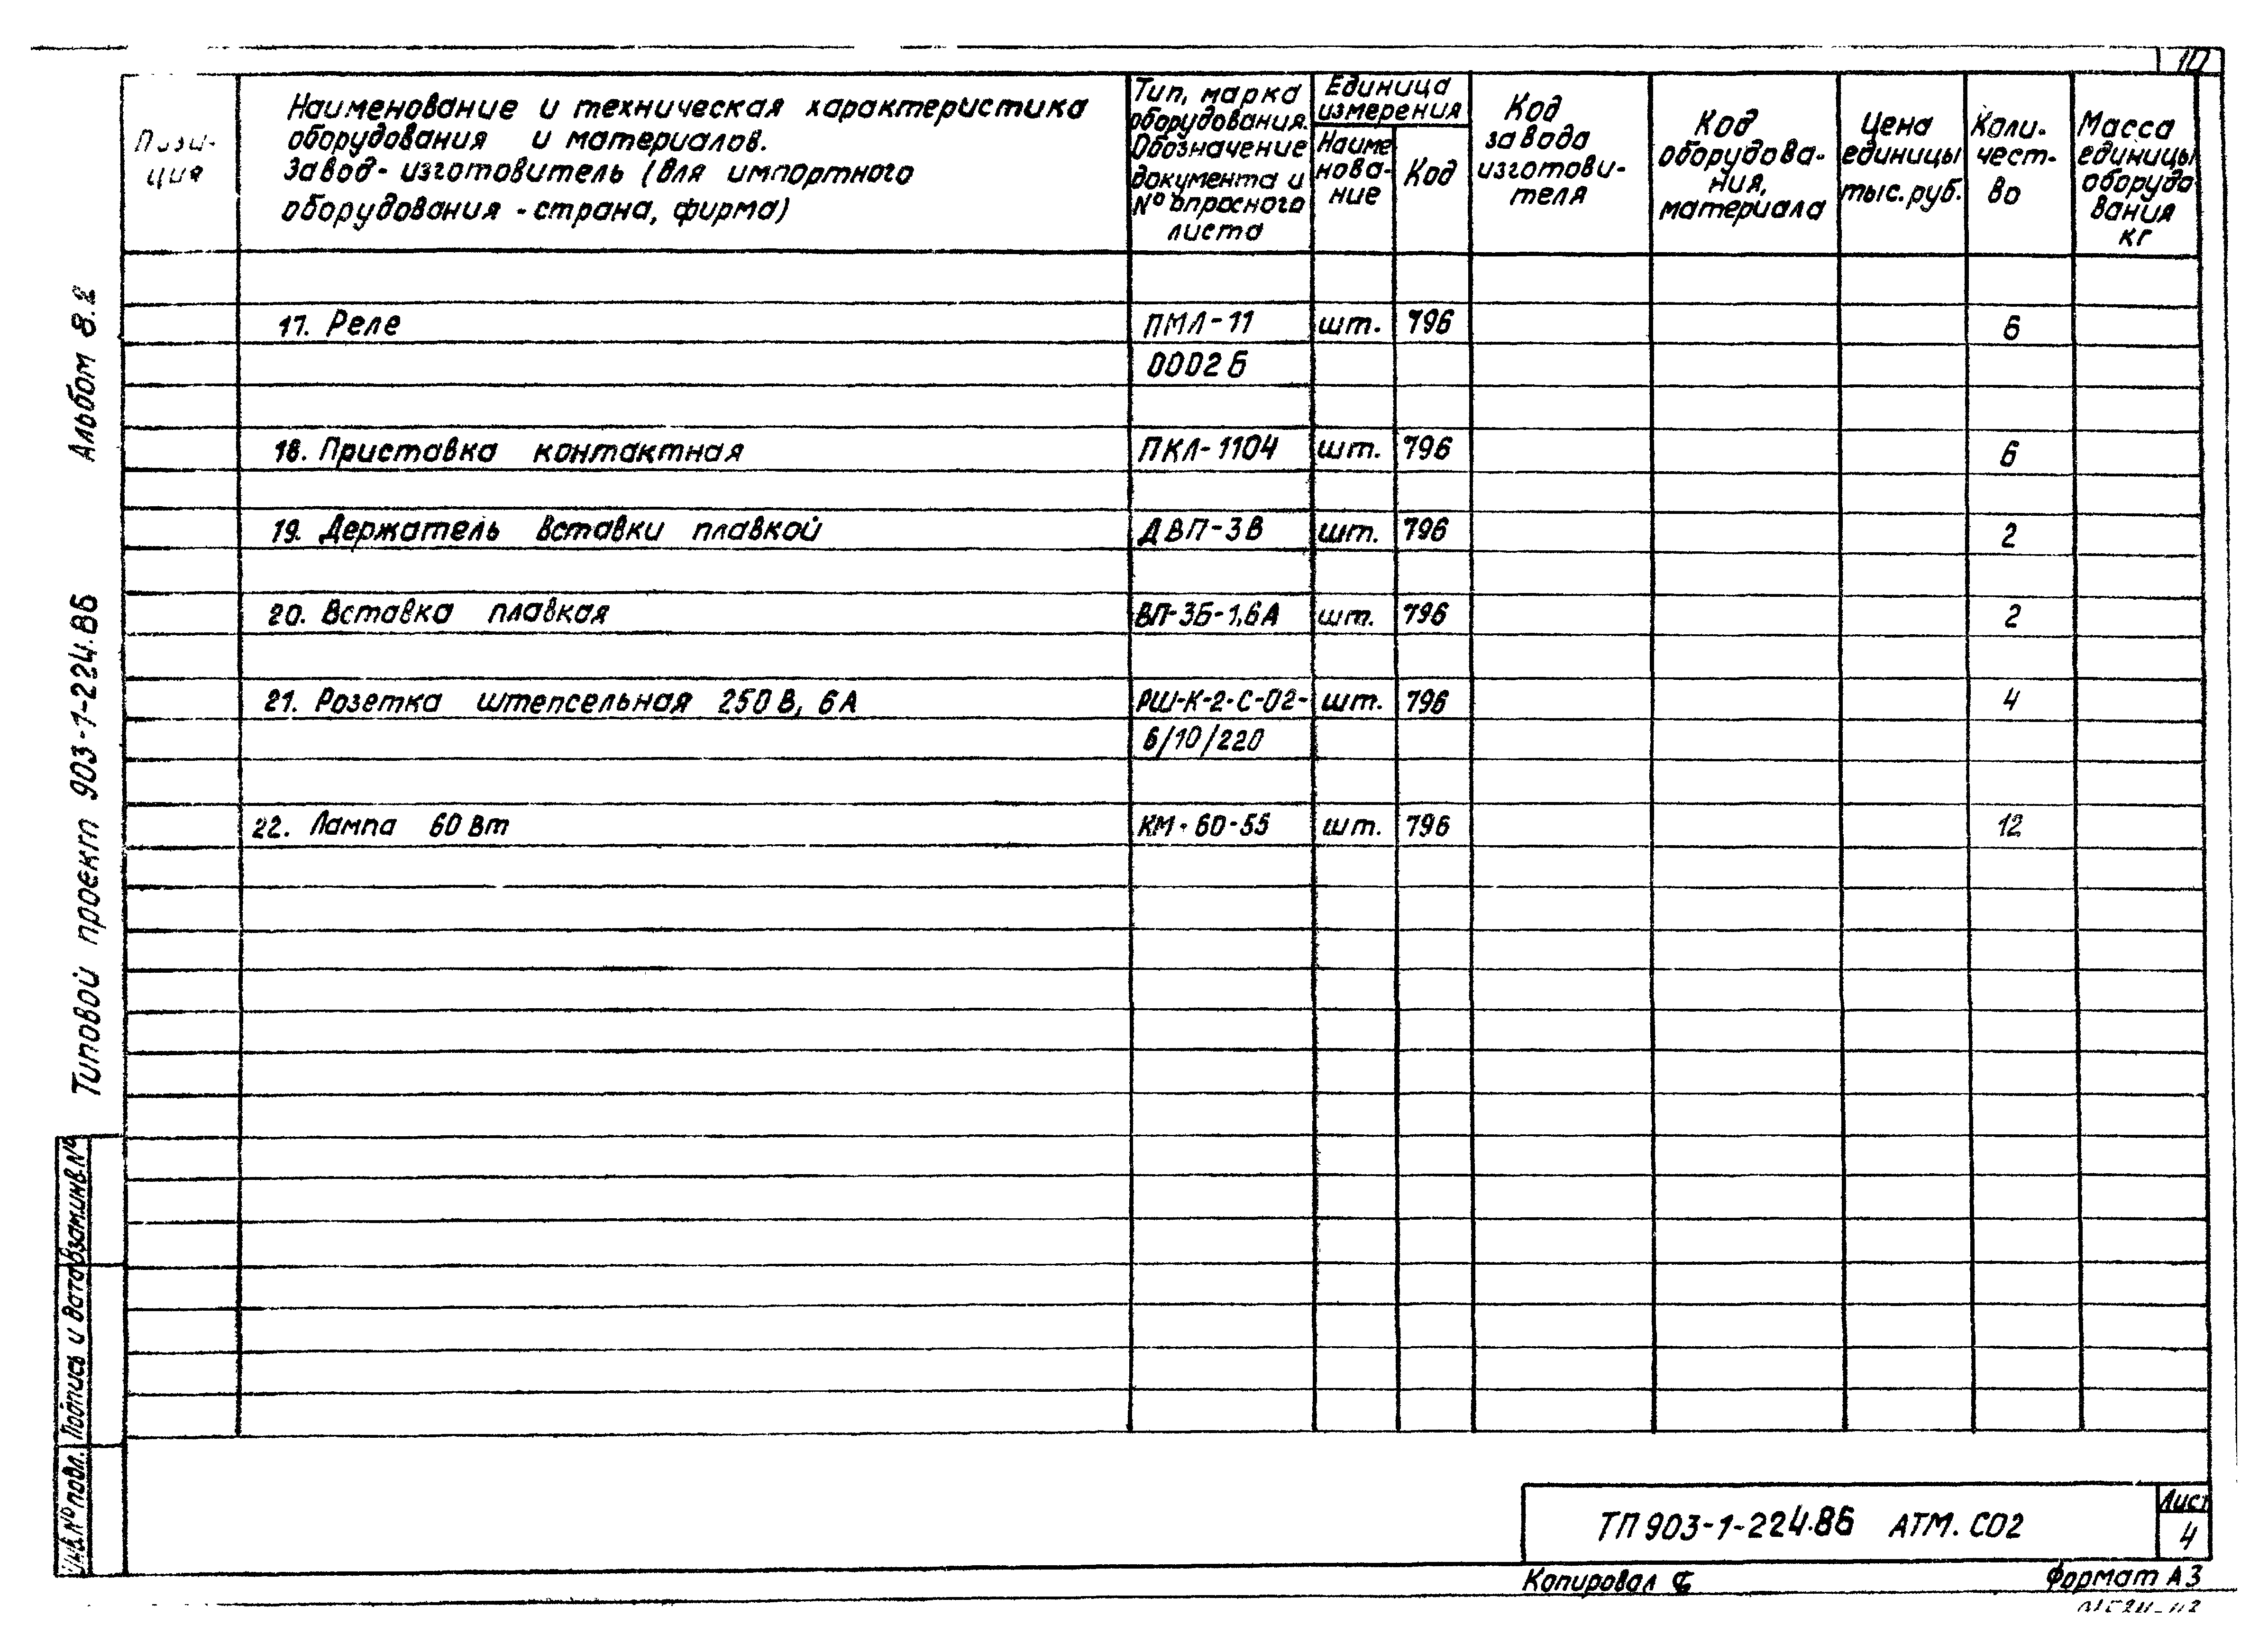 10
Пози-
ция
Наименование и техническая характеристика
оборудования и материалов.
Завод-изготовитель (для импортного
оборудования - страна, фирма)
Тип, марка
оборудования.
Обозначение
документа и
№ опросного
листа
Единица
измерения
Наиме
нова-
ние
Код
Код
завода
изготови-
теля
Код
оборудова-
ния,
материала
Цена
единицы
тыс. руб.
Коли-
чест-
во
Масса
единицы
оборудо
вания
кг
17. Реле ПМЛ-11 шт. 796 6
0002Б
18. Приставка контактная ПКЛ-1104 шт. 796 6
19. Держатель вставки плавкой ДВП-3В шт. 796 2
20. Вставка плавкая ВП-3Б-1,6А шт. 796 2
21. Розетка штепсельная 250В, 6А РШ-К-2-С-02- шт. 796 4
6/10/220
22. Лампа 60Вт КМ-60-55 шт. 796 12
Альбом 8.2
Типовой проект 903-1-224.86
Взам.инв.№
Подпись и дата
Инв.№ подл.
ТП 903-1-224.86 АТМ. СО2
Лист
4
Копировал
Формат А3